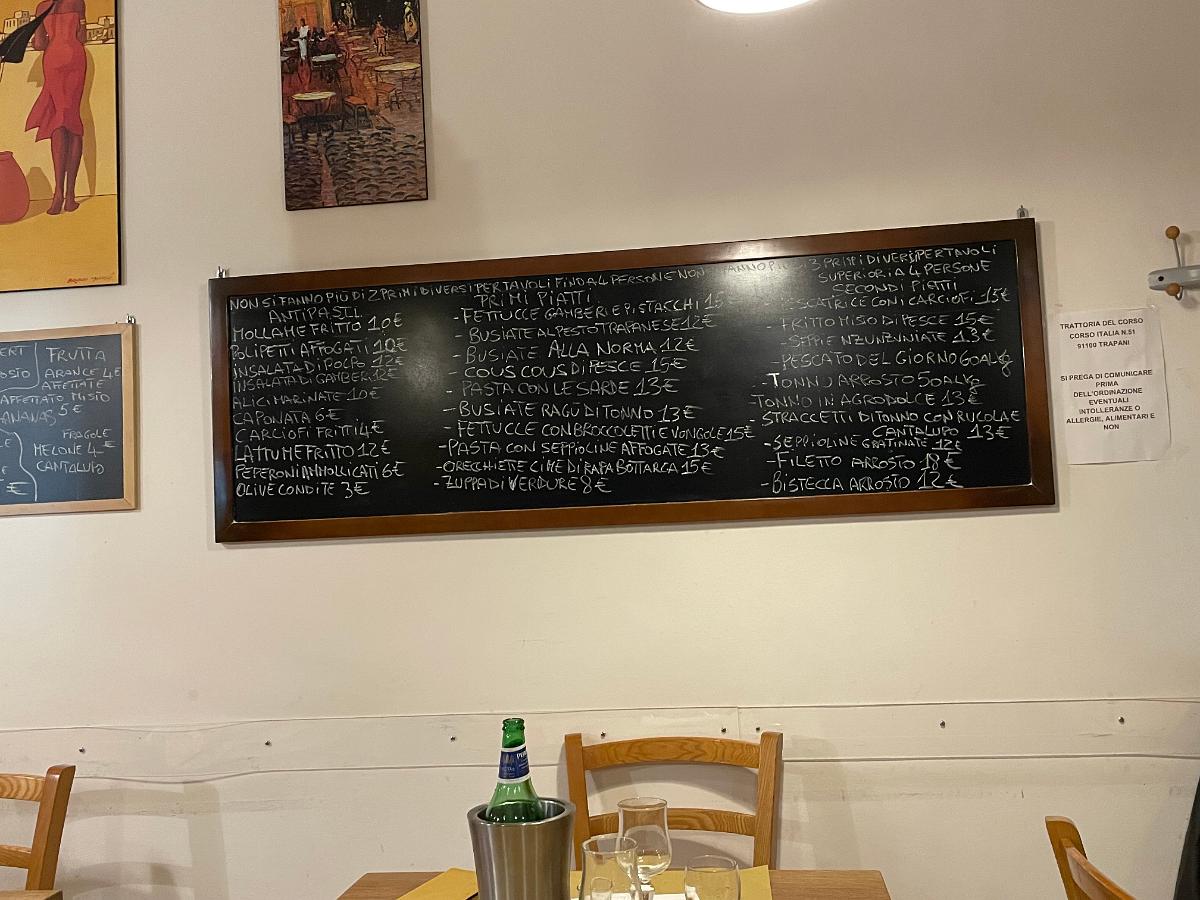 NON SI FANNO PIÙ DI 2 PRIMI DIVERSI PER TAVOLI FINO A 4 PERSONE NON 3 PRIMI DIVERSI PER TAVOLI
SUPERIORI A 4 PERSONE
ANTIPASTI
MOLLAME FRITTO 10€
POLIPETTI AFFOGATI 10€
INSALATA DI POLPO 12€
INSALATA DI GAMBERI 12€
ALICI MARINATE 10€
CAPONATA 6€
CARCIOFI FRITTI 4€
LATTUME FRITTO 12€
PEPERONI AMMOLLICATI 6€
OLIVE CONDITE 3€
PRIMI PIATTI
-FETTUCCE GAMBERI E PISTACCHI 15
-BUSIATE AL PESTO TRAPANESE 12€
-BUSIATE ALLA NORMA 12€
-COUS COUS DI PESCE 15€
-PASTA CON LE SARDE 13€
-BUSIATE RAGÙ DI TONNO 13€
-FETTUCCE CON BROCCOLETTI E VONGOLE 15€
-PASTA CON SEPPIOLINE AFFOGATE 13€
-ORECCHIETE CIME DI RAPA BOTTARGA 15€
-ZUPPA DI VERDURE 8€
SECONDI PIATTI
CON I CARCIOFI 15€
-FRITTO MISO DI PESCE 15€
-SEPPIE NZUNZUNIATE 13€
-PESCATO DEL GIORNO 60AL Kg
-TONNO ARROSTO 50AL Kg
-TONNO IN AGRODOLCE 13€
STRACCETTI DI TONNO CON RUCOLA E
CANTALUPO 13€
-SEPPIOLINE GRATINATE 12€
-FILETTO ARROSTO 18€
-BISTECCA ARROSTO 12€
FRUTTA
ARANCE 4€
AFFETTATE
AFFETTATO MISTO
ANANAS 5€
FRAGOLE
MELONE 4€
CANTALUPO
€
TRATTORIA DEL CORSO
CORSO ITALIA N.51
91100 TRAPANI
SI PREGA DI COMUNICARE
PRIMA
DELL'ORDINAZIONE
EVENTUALI
INTOLLERANZE O
ALLERGIE, ALIMENTARI E
NON